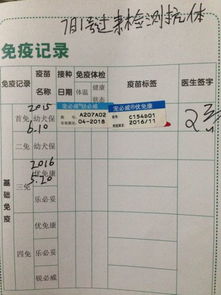 7月1号过来检测抗体
免疫记录
免疫记录 疫苗名称 接种日期 免疫体检 体温 健康状态 疫苗标签 医生签字
2015
首免 幼犬保
6.10
宠必威®优必威
A207A02
04-2018
宠必威®优免康
C154B01
2016/11
二免 幼犬保
2016
优免康
5.20
三免
乐必妥
基础免疫
优免康
四免 乐必妥
锐必威